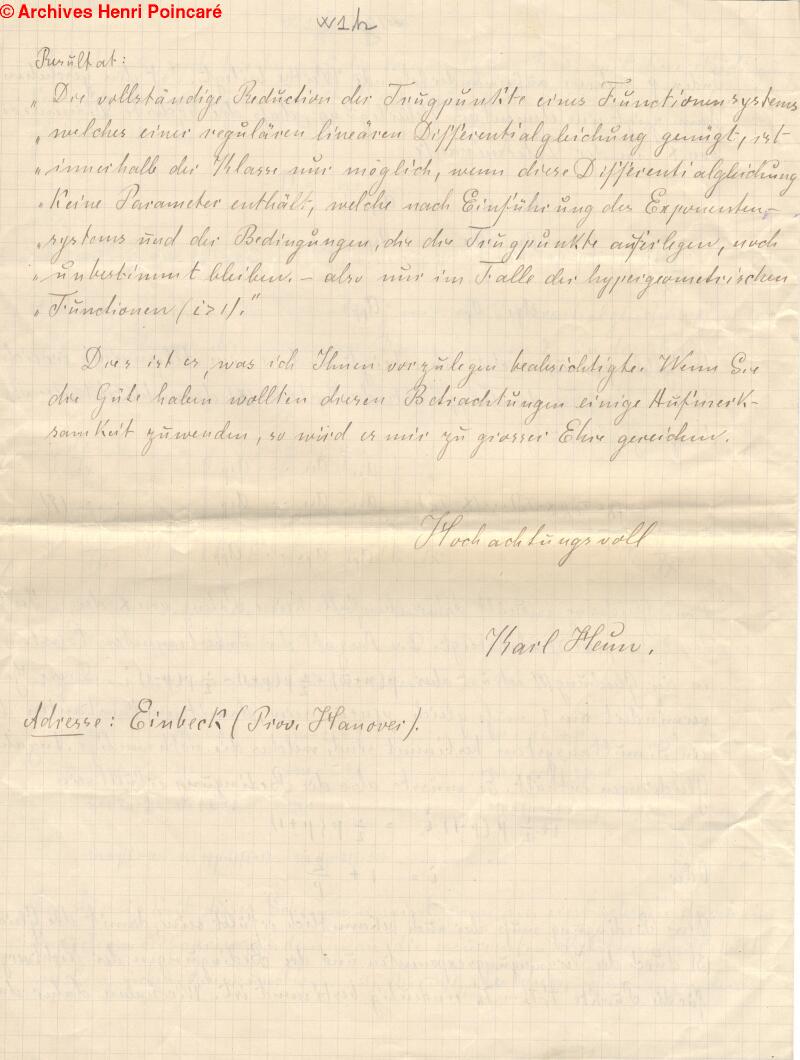 © Archives Henri Poincaré
Resultat:
„Die vollständige Reduction der Trugpunkte eines Functionensystems
„welches einer regulären linearen Differentialgleichung genügt, ist
„innerhalb der Klasse nur möglich, wenn diese Differentialgleichung
„Keine Parameter enthält, welche nach Einführung des Exponenten-
„systems und der Bedingungen, die die Trugpunkte auferlegen, noch
„unbestimmt bleiben. – also nur im Falle der hypergeometrischen
„Functionen (i>1)."
Dies ist es, was ich Ihnen vorzulegen beabsichtigte. Wenn Sie
die Güte haben wollten diesen Betrachtungen einige Aufmerk-
samkeit zuwenden, so wird es mir zu grosser Ehre gereichen.
Hochachtungsvoll
Karl Heun.
Adresse: Einbeck (Prov. Hanover).